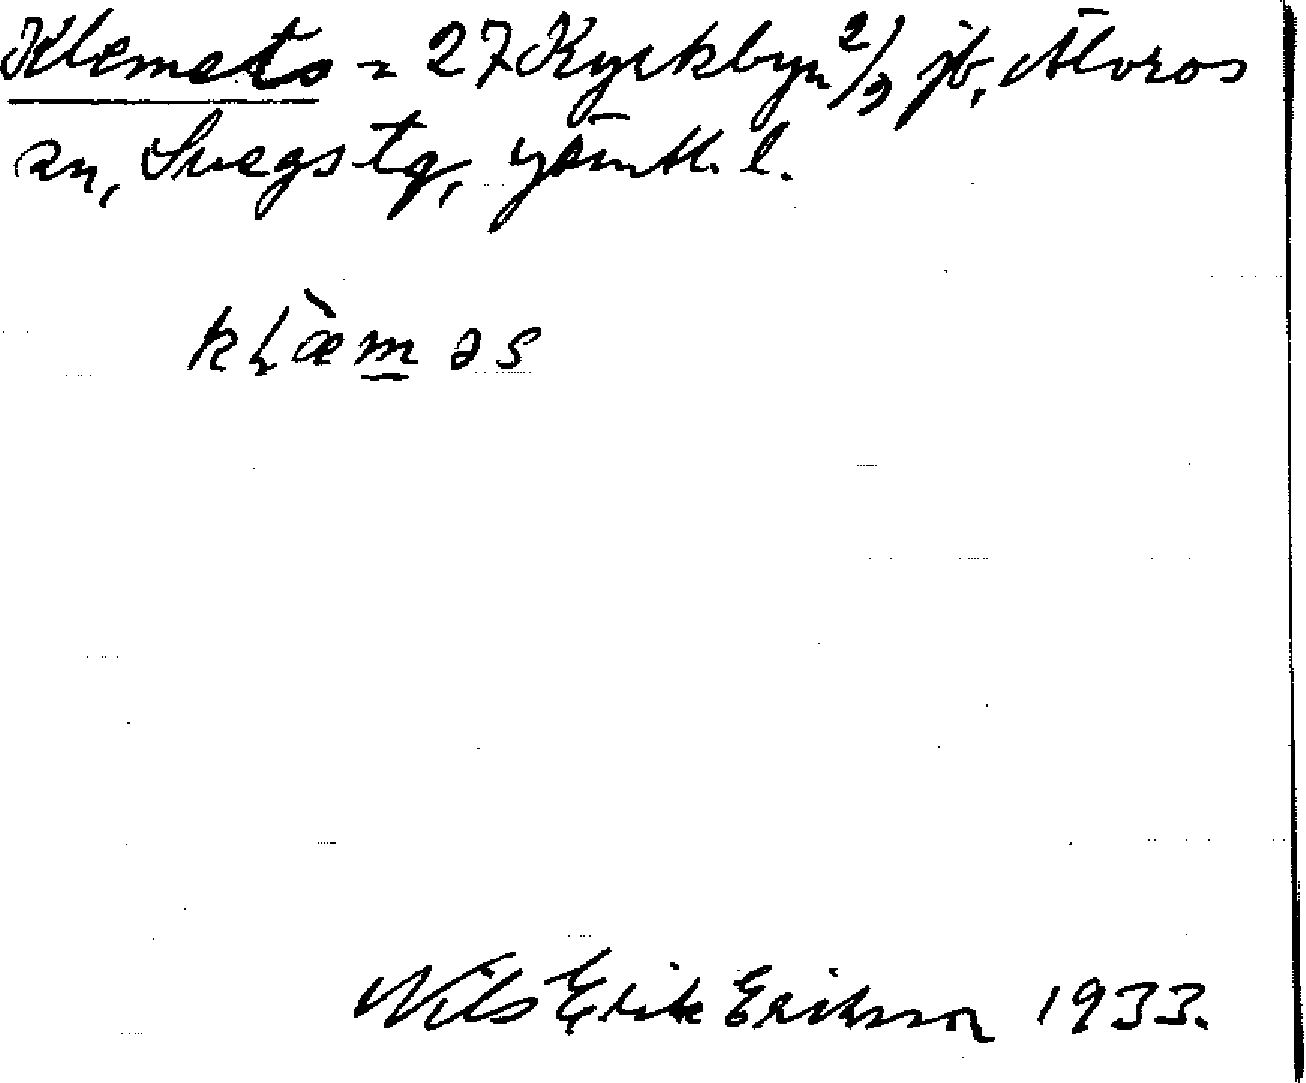 Klemets = 27 Kyrkbyn 2/9 jb, Älvros
sn, Svegs tg, Jämtl. l.
kḷæ̀m̲əs
Nils Erik Erikson 1933.